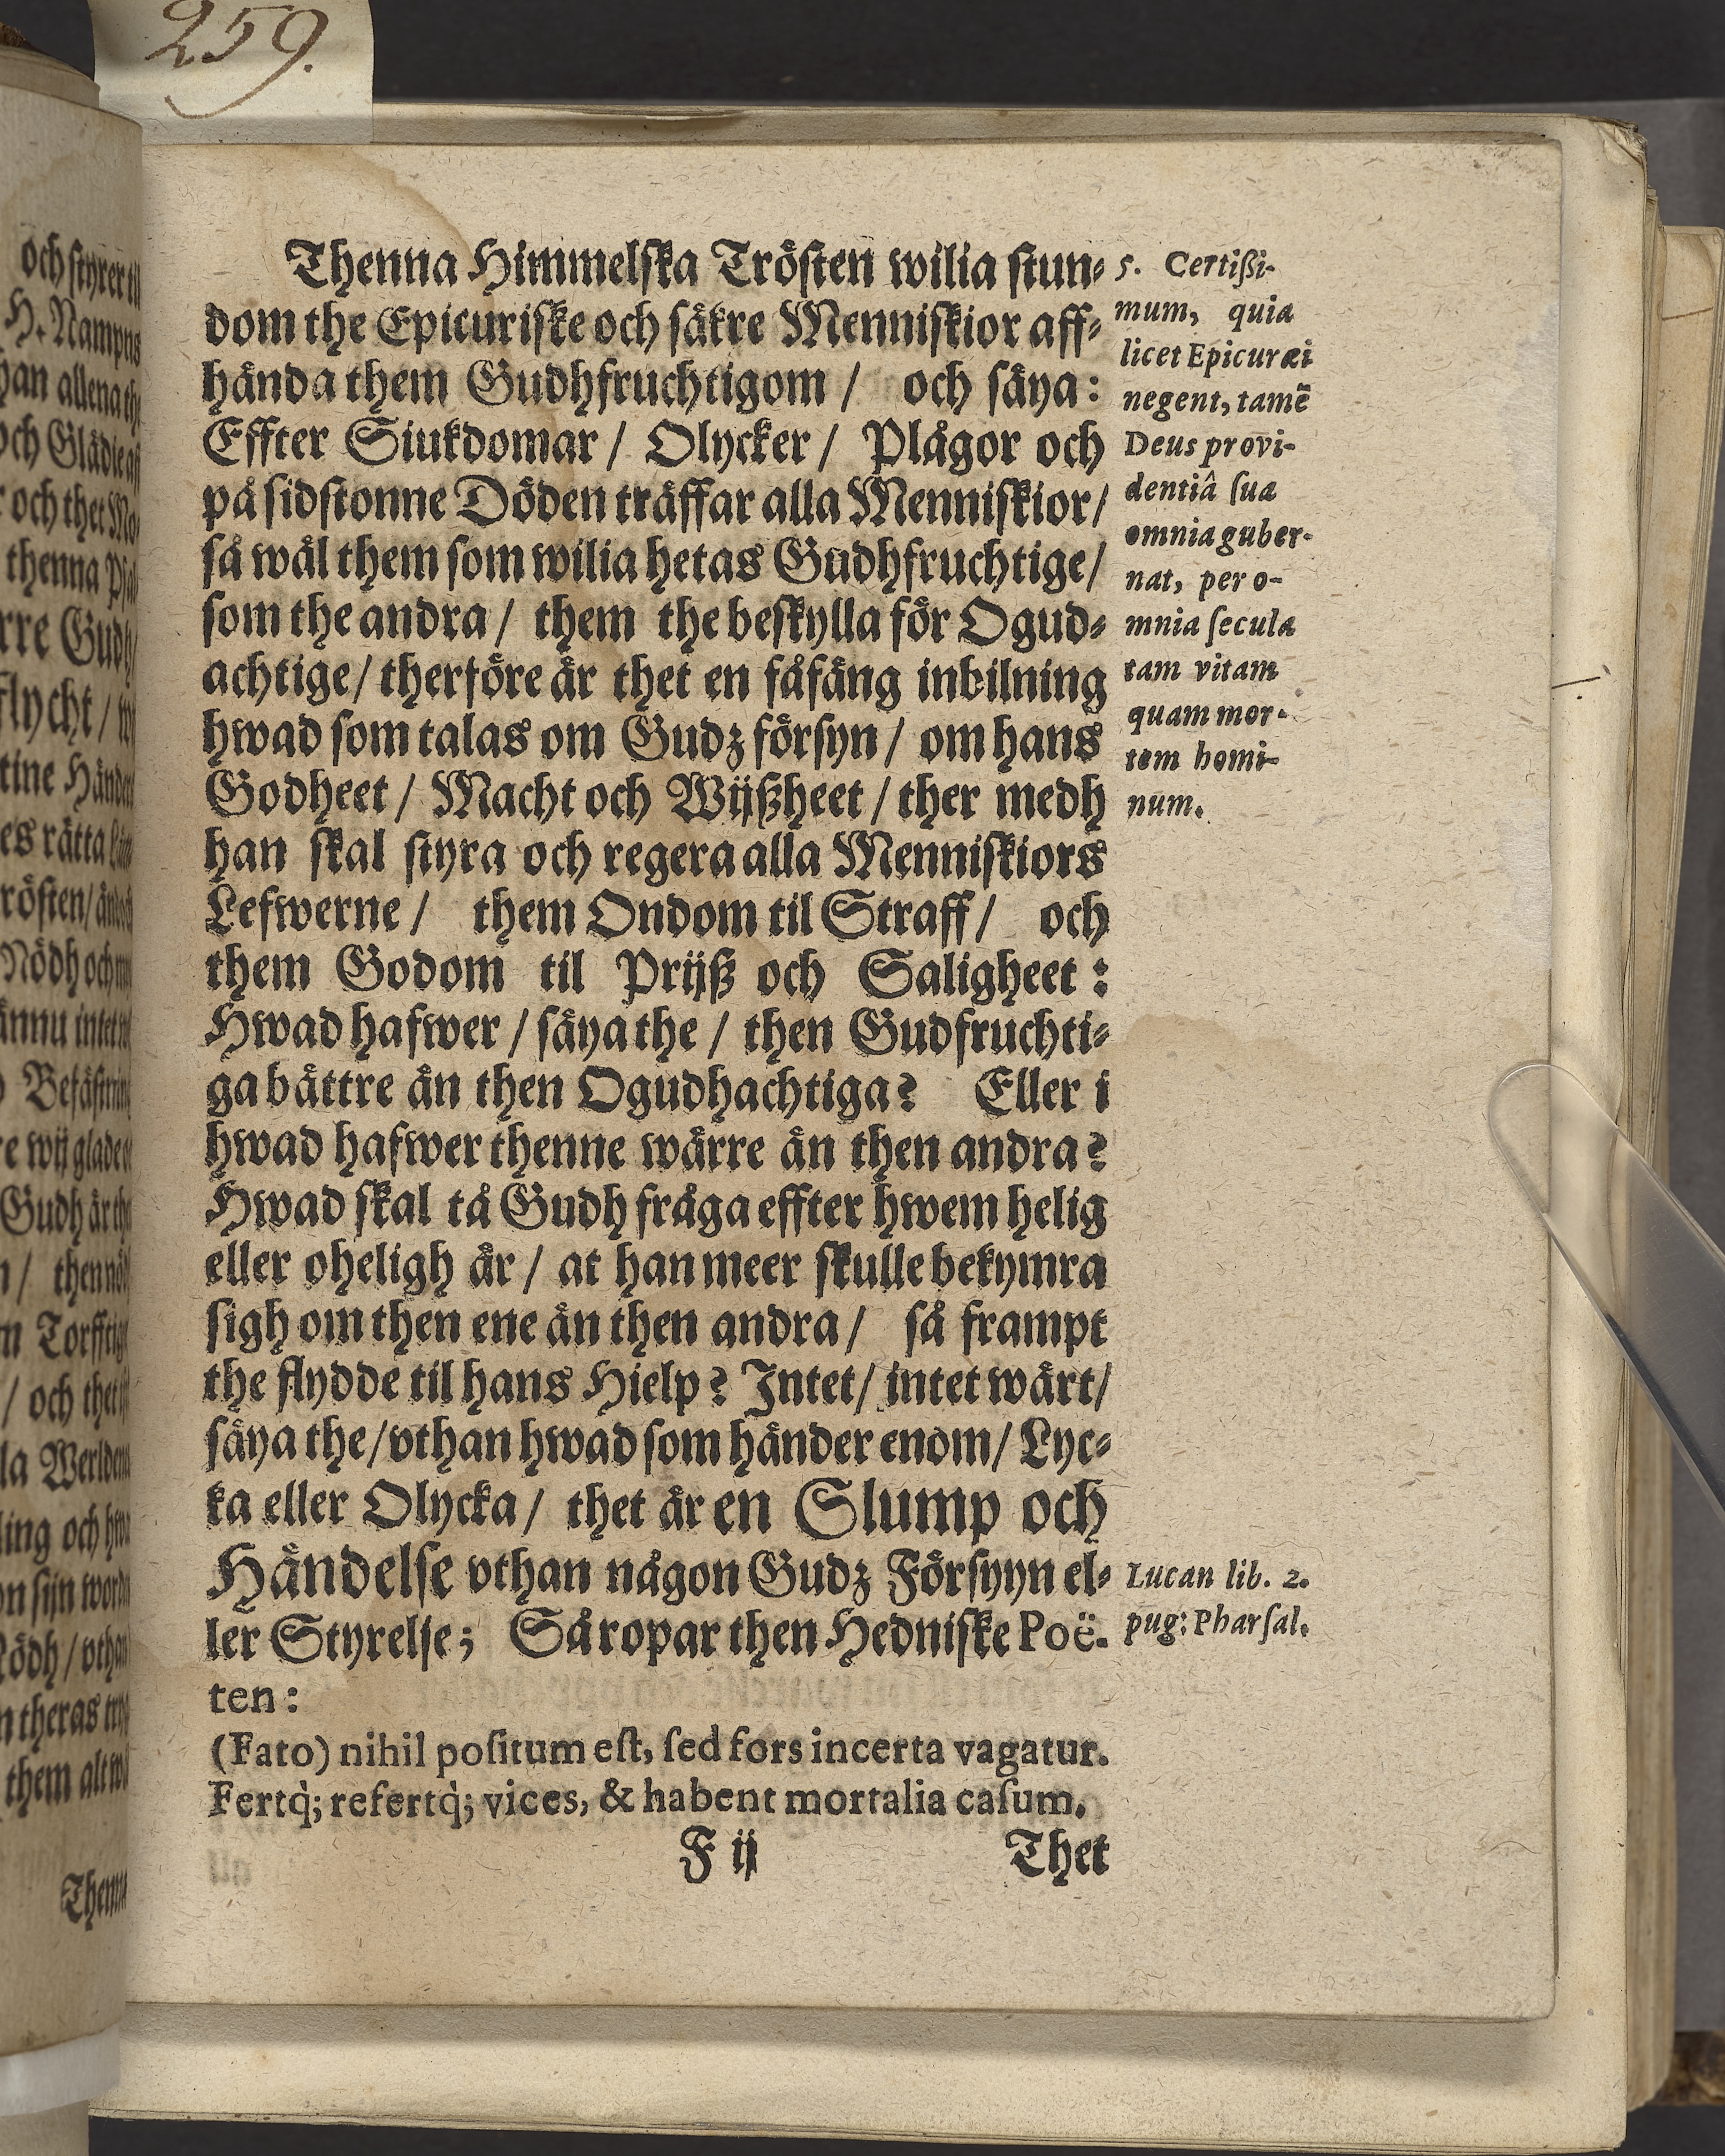 259.
och styrer til
H. Nampns
han allena
och Glädie
och thet
thenna
Gudh
flycht /
tine Händer
es rätta
rösten /
Nödh och
ännu intet
Befästning
wij glade
Gudh är
/ then
Torfftig
/ och thet
la Werldena
ling och
sijn
Nödh / vthan
theras
them alt
Thenna
Thenna Himmelſka Tröſten wilia ſtun⸗
dom the Epicuriſke och ſäkre Menniſkior aff⸗
hända them Gudhfruchtigom / och ſäya:
Effter Siukdomar / Olycker / Plågor och
på ſidſtonne Döden träffar alla Menniſkior /
ſå wäl them ſom wilia hetas Gudhfruchtige /
ſom the andra / them the beſkylla för Ogud⸗
achtige / therföre är thet en fåfäng inbilning
hwad ſom talas om Gudz förſyn / om hans
Godheet / Macht och Wijßheet / ther medh
han ſkal ſtyra och regera alla Menniſkiors
Lefwerne / them Ondom til Straff / och
them Godom til Prijß och Saligheet:
Hwad hafwer / ſäya the / then Gudfruchti⸗
ga bättre än then Ogudhachtiga? Eller i
hwad hafwer thenne wärre än then andra?
Hwad ſkal tå Gudh fråga effter hwem helig
eller oheligh är / at han meer ſkulle bekymra
ſigh om then ene än then andra / ſå frampt
the flydde til hans Hielp? Intet / intet wärt /
ſäya the / vthan hwad ſom händer enom / Lyc⸗
ka eller Olycka / thet är en Slump och
Händelſe vthan någon Gudz Förſyyn el⸗
ler Styrelſe; Så ropar then Hedniſke Poë-
ten:
(Fato) nihil poſitum eſt, ſed fors incerta vagatur.
Fertq̀; refertq̀; vices, & habent mortalia caſum.
F ij Thet
5. Certißi-
mum, quia
licet Epicuræi
negent, tamẽ
Deus provi-
dentiâ ſua
omnia guber-
nat, per o-
mnia ſecula
tam vitam
quam mor-
tem homi-
num.
Lucan lib. 2.
pug: Pharſal.